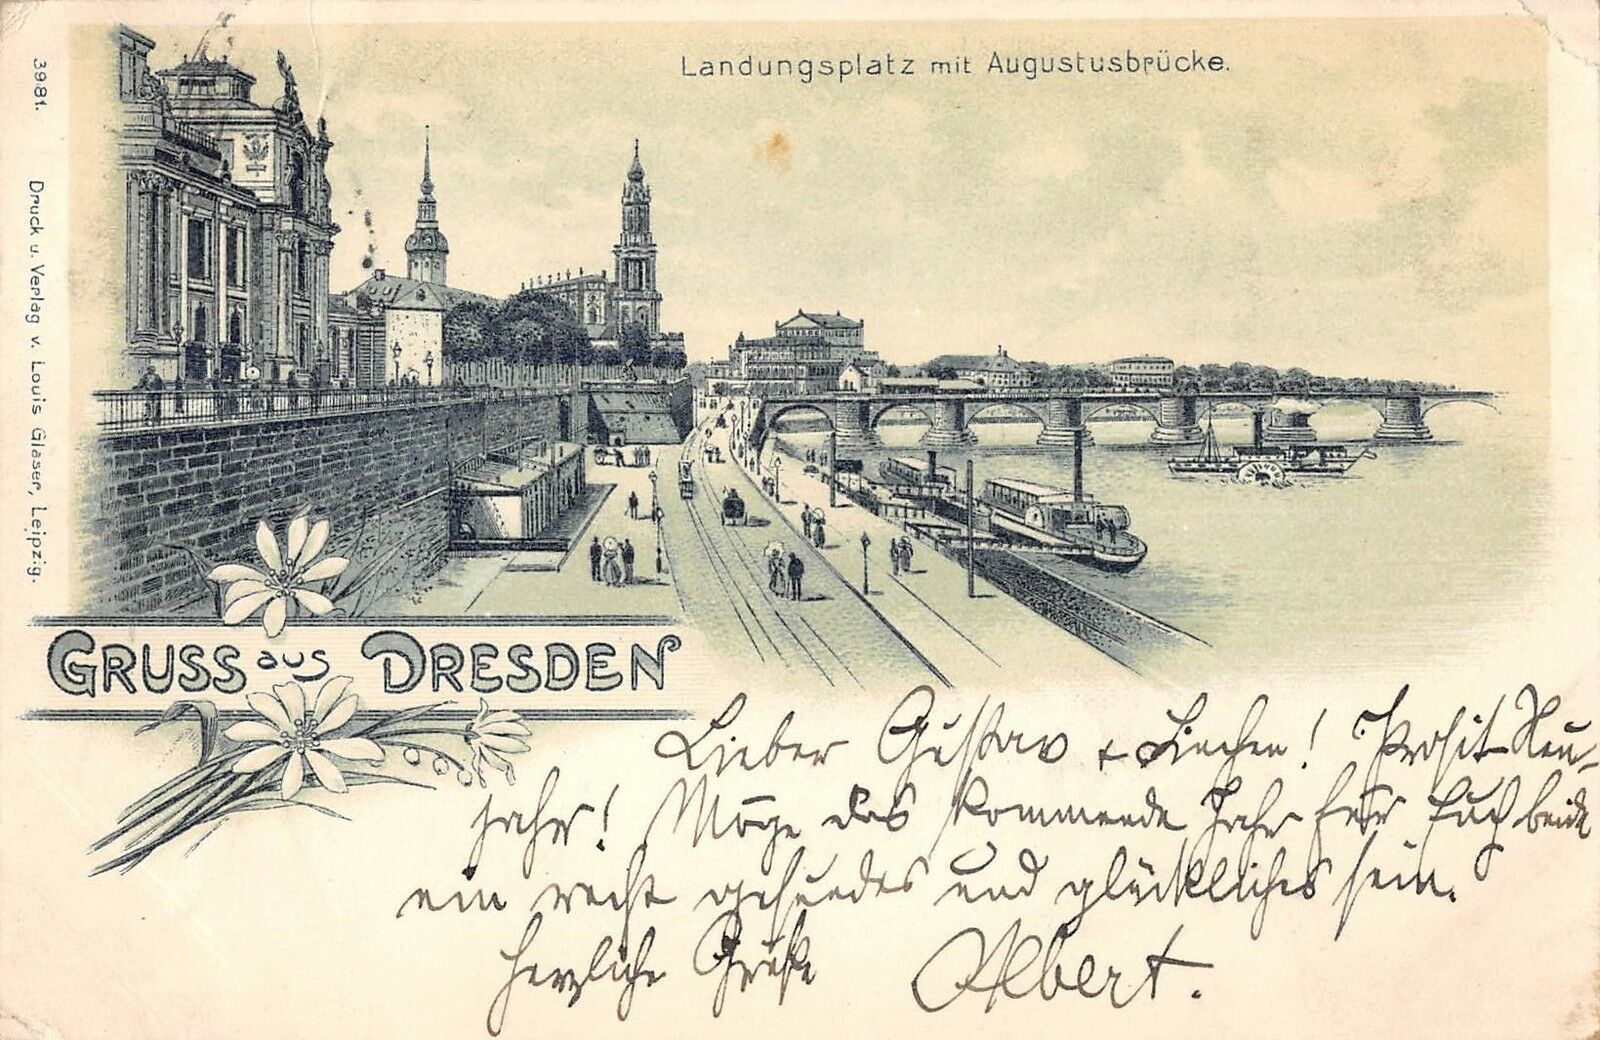 Landungsplatz mit Augustusbrücke.
3981. Druck u. Verlag v. Louis Glaser, Leipzig.
GRUSS aus DRESDEN
Lieber Gustav + Linchen! Prosit Neu-
jahr! Möge das kommende Jahr für Euch beide
ein recht gesundes und glückliches sein.
Herzliche Grüße Albert.